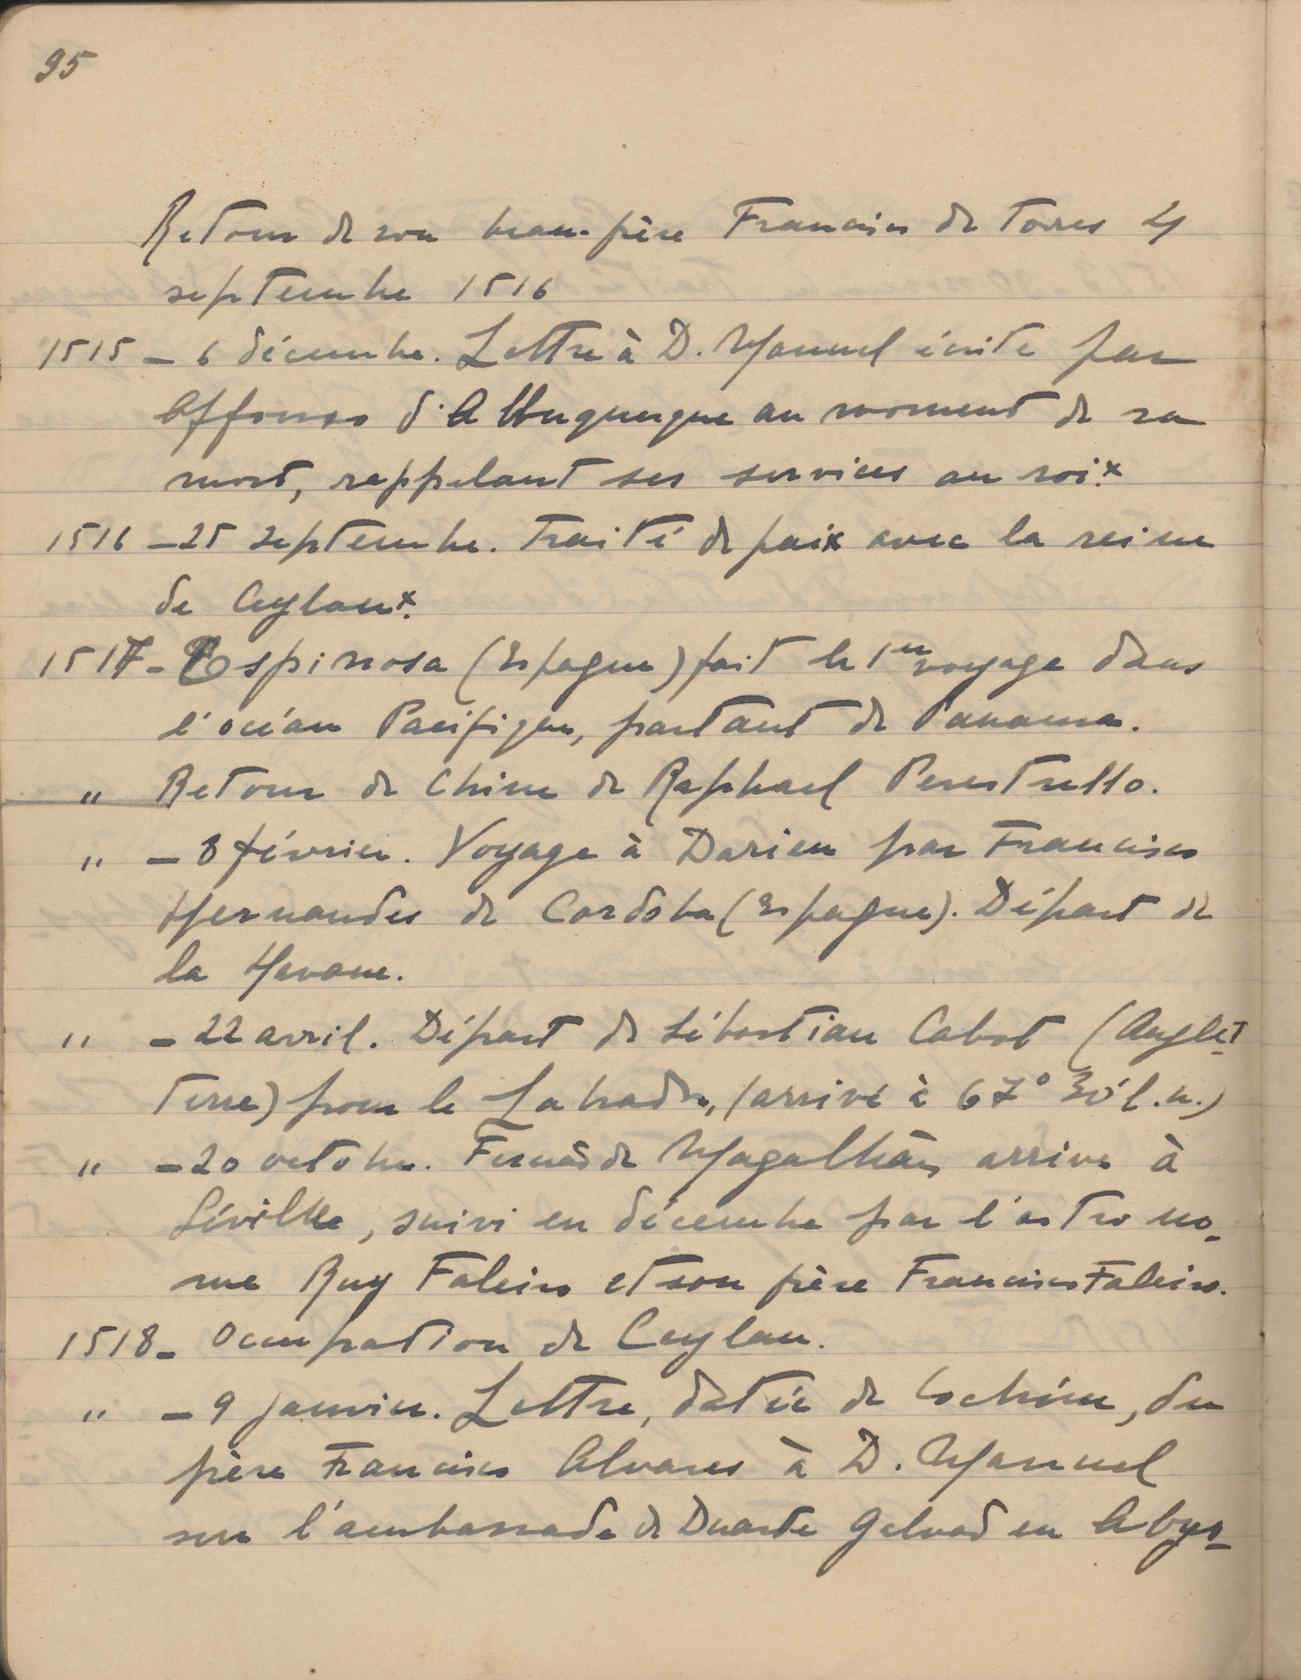 95
Retour de son beau-frère Francisco de Torres 4
septembre 1516
1515 — 6 décembre. Lettre à D. Manuel écrite par
Affonso d'Albuquerque au moment de sa
mort, rappelant ses services au roi.x
1516 — 25 septembre. Traité de paix avec la reine
de Ceylan x.
1517 - Espinosa (Espagne) fait le 1er voyage dans
l'océan Pacifique, partant de Panama.
" Retour de Chine de Raphael Perestrello.
" — 8 février. Voyage à Darien par Francisco
Hernandes de Cordoba (Espagne). Départ de
la Havane.
" — 22 avril. Départ de Sébastian Cabot (Anglet-
terre) pour le Labrador, (arrivé à 67° 30' l.n.)
" — 20 octobre. Fernão de Magalhães arrive à
Séville, suivi en décembre par l'astrono-
me Ruy Faleiro et son frère Francisco Faleiro.
1518 - Occupation de Ceylan.
" — 9 janvier. Lettre, datée de Cochim, du
père Francisco Alvares à D. Manuel
sur l'ambassade de Duarte Galvad en Abys-